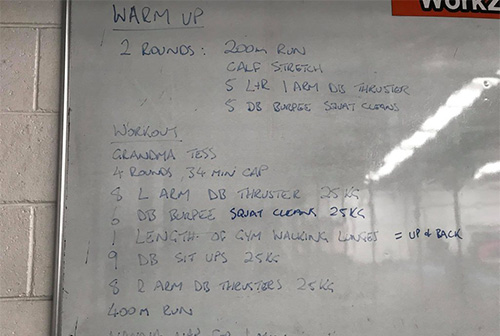 Workz
WARM UP
2 ROUNDS: 200M RUN
CALF STRETCH
5 L+R 1 ARM DB THRUSTER
5 DB BURPEE SQUAT CLEANS
WORKOUT
GRANDMA TESS
4 ROUNDS, 34 MIN CAP
8 L ARM DB THRUSTER 25KG
6 DB BURPEE SQUAT CLEANS 25KG
1 LENGTH OF GYM WALKING LUNGES = UP & BACK
19 DB SIT UPS 25KG
8 R ARM DB THRUSTERS 25KG
400M RUN